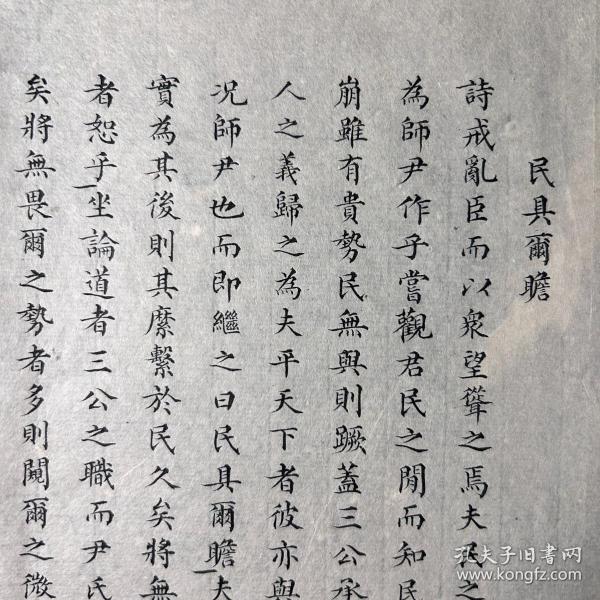 民具爾瞻
詩戒亂臣而以衆望聳之焉夫民之
為師尹作乎嘗觀君民之間而知民
崩雖有貴勢民無與則蹶蓋三公承
人之義歸之為夫平天下者彼亦與
况師尹也而即繼之曰民具爾瞻夫
實為其後則其縻繫於民久矣將無
者恕乎坐論道者三公之職而尹氏
矣將無畏爾之勢者多則闚爾之微
孔夫子旧书网
www.kongfz.com